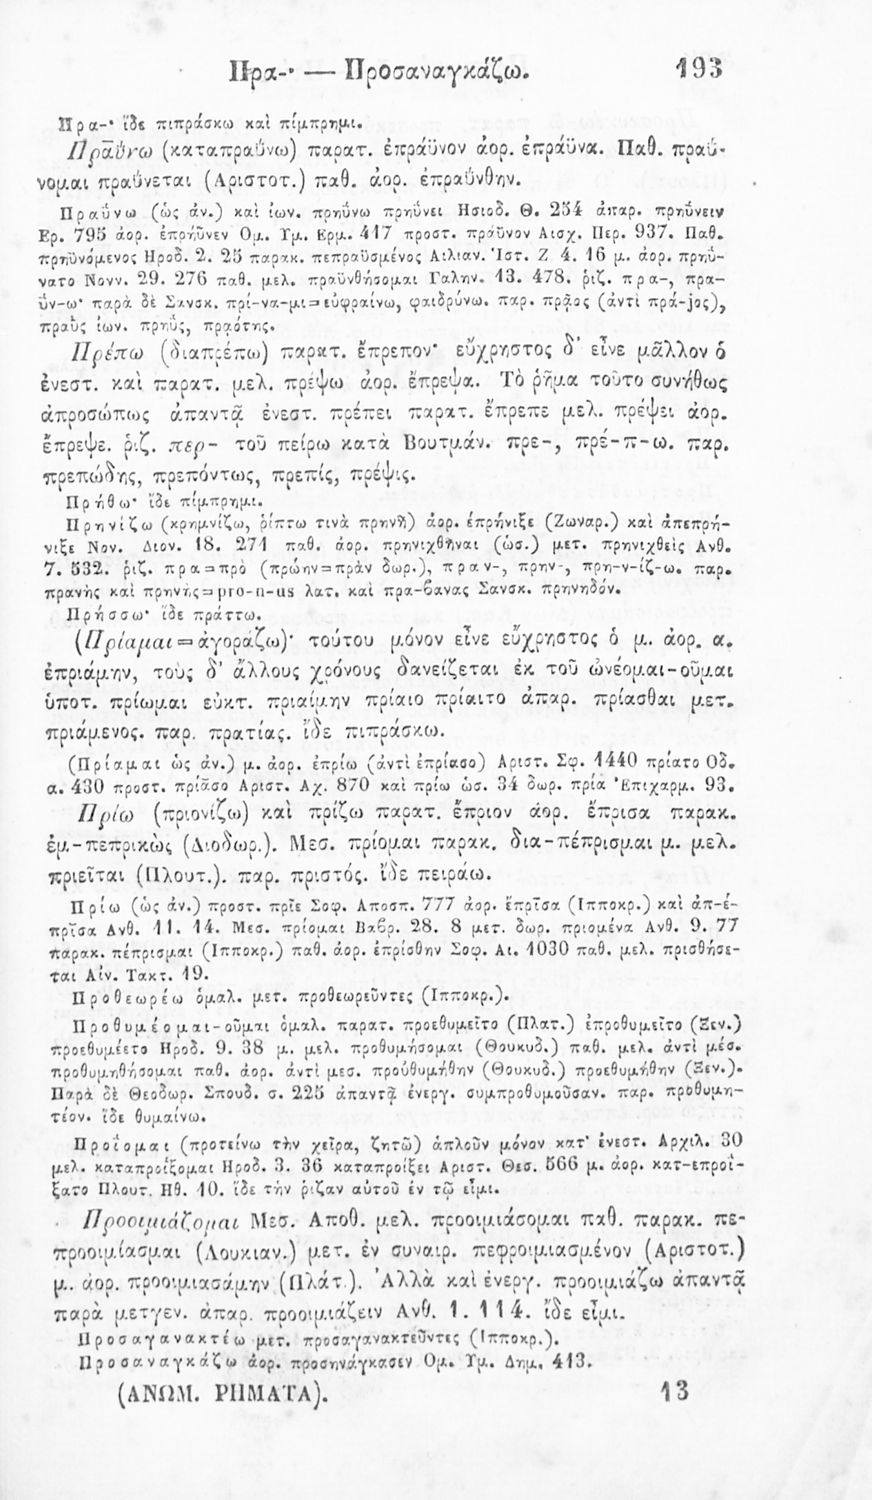 Πρα-· — Προσαναγκάζω. 193
Πρα-· ἴδε πιπράσκω καὶ πίμπρημι.
Πρᾱΰνω (καταπραΰνω) παρατ. ἐπράϋνον ἀορ. ἐπράϋνα. Παθ. πραΰ-
νομαι πραΰνεται (Αριστοτ.) παθ. ἀορ. ἐπραΰνθην.
Πραΰνω (ὡς ἀν.) καὶ ἰων. πρηΰνω πρηΰνει Ησιοδ. Θ. 254 ἀπαρ. πρηΰνειν
Ερ. 795 ἀορ. ἐπρήϋνεν Ομ. Υμ. Ερμ. 417 προστ. πράϋνον Αισχ. Περ. 937. Παθ.
πρηϋνόμενος Ηροδ. 2. 25 παρακ. πεπραϋσμένος Αιλιαν. Ἱστ. Ζ 4. 16 μ. ἀορ. πρηΰ-
νατο Νονν. 29. 276 παθ. μελ. πραϋνθήσομαι Γαλην. 13. 478. ῥιζ. πρα-, πρα-
ΰν-ω· παρὰ δὲ Σανσκ. πρί-να-μι=εὐφραίνω, φαιδρύνω. παρ. πρᾷος (ἀντὶ πρά-jος),
πραῢς ἰων. πρηΰς, πρᾳότης.
Πρέπω (διαπρέπω) παρατ. ἔπρεπον· εὔχρηστος δ' εἶνε μᾶλλον ὁ
ἐνεστ. καὶ παρατ. μελ. πρέψω ἀορ. ἔπρεψα. Τὸ ῥῆμα τοῦτο συνήθως
ἀπροσώπως ἀπαντᾷ ἐνεστ. πρέπει παρατ. ἔπρεπε μελ. πρέψει ἀορ.
ἔπρεψε. ῥιζ. περ- τοῦ πείρω κατὰ Βουτμάν. πρε-, πρέ-π-ω. παρ.
πρεπώδης, πρεπόντως, πρεπίς, πρέψις.
Πρήθω· ἴδε πίμπρημι.
Πρηνίζω (κρημνίζω, ῥίπτω τινὰ πρηνῆ) ἀορ. ἐπρήνιξε (Ζωναρ.) καὶ ἀπεπρή-
νιξε Νον. Διον. 18. 271 παθ. ἀορ. πρηνιχθῆναι (ὡσ.) μετ. πρηνιχθεὶς Ανθ.
7. 532. ῥιζ. πρα=πρὸ (πρώην=πρὰν δωρ.), πραν-, πρην-, πρη-ν-ίζ-ω. παρ.
πρανὴς καὶ πρηνὴς=pro-n-us λατ. καὶ πρα-βανας Σανσκ. πρηνηδόν.
Πρήσσω· ἴδε πράττω.
(Πρίαμαι=ἀγοράζω)· τούτου μόνον εἶνε εὔχρηστος ὁ μ. ἀορ. α.
ἐπριάμην, τοὺς δ' ἄλλους χρόνους δανείζεται ἐκ τοῦ ὠνέομαι-οῦμαι
ὑποτ. πρίωμαι εὐκτ. πριαίμην πρίαιο πρίαιτο ἀπαρ. πρίασθαι μετ.
πριάμενος. παρ. πρατίας. ἴδε πιπράσκω.
(Πρίαμαι ὡς ἀν.) μ. ἀορ. ἐπρίω (ἀντὶ ἐπρίασο) Αριστ. Σφ. 1440 πρίατο Οδ.
α. 430 προστ. πρίᾱσο Αριστ. Αχ. 870 καὶ πρίω ὡσ. 34 δωρ. πρία Ἐπιχαρμ. 93.
Πρίω (πριονίζω) καὶ πρίζω παρατ. ἔπριον ἀορ. ἔπρισα παρακ.
ἐμ-πεπρικὼς (Διοδωρ.). Μεσ. πρίομαι παρακ. δια-πέπρισμαι μ. μελ.
πριεῖται (Πλουτ.). παρ. πριστός. ἴδε πειράω.
Πρίω (ὡς ἀν.) προστ. πρῖε Σοφ. Αποσπ. 777 ἀορ. ἔπρῑσα (Ιπποκρ.) καὶ ἀπ-έ-
πρῑσα Ανθ. 11. 14. Μεσ. πρίομαι Βαβρ. 28. 8 μετ. δωρ. πριομένα Ανθ. 9. 77
παρακ. πέπρισμαι (Ιπποκρ.) παθ. ἀορ. ἐπρίσθην Σοφ. Αι. 1030 παθ. μελ. πρισθήσε-
ται Αἰν. Τακτ. 19.
Προθεωρέω ὁμαλ. μετ. προθεωρεῦντες (Ιπποκρ.).
Προθυμέομαι-οῦμαι ὁμαλ. παρατ. προεθυμεῖτο (Πλατ.) ἐπροθυμεῖτο (Ξεν.)
προεθυμέετο Ηροδ. 9. 38 μ. μελ. προθυμήσομαι (Θουκυδ.) παθ. μελ. ἀντὶ μέσ.
προθυμηθήσομαι παθ. ἀορ. ἀντὶ μεσ. προὐθυμήθην (Θουκυδ.) προεθυμήθην (Ξεν.).
Παρὰ δὲ Θεοδωρ. Σπουδ. σ. 225 ἀπαντᾷ ἐνεργ. συμπροθυμοῦσαν. παρ. προθυμη-
τέον. ἴδε θυμαίνω.
Προΐομαι (προτείνω τὴν χεῖρα, ζητῶ) ἁπλοῦν μόνον κατ' ἐνεστ. Αρχιλ. 30
μελ. καταπροΐξομαι Ηροδ. 3. 36 καταπροίξει Αριστ. Θεσ. 566 μ. ἀορ. κατ-επροΐ-
ξατο Πλουτ. Ηθ. 10. ἴδε τὴν ῥίζαν αὐτοῦ ἐν τῷ εἶμι.
Προοιμιάζομαι Μεσ. Αποθ. μελ. προοιμιάσομαι παθ. παρακ. πε-
προοιμίασμαι (Λουκιαν.) μετ. ἐν συναιρ. πεφροιμιασμένον (Αριστοτ.)
μ. ἀορ. προοιμιασάμην (Πλάτ.). Ἀλλὰ καὶ ἐνεργ. προοιμιάζω ἀπαντᾷ
παρὰ μετγεν. ἀπαρ. προοιμιάζειν Ανθ. 1. 114. ἴδε εἶμι.
Προσαγανακτέω μετ. προσαγανακτεῦντες (Ιπποκρ.).
Προσαναγκάζω ἀορ. προσηνάγκασεν Ομ. Υμ. Δημ. 413.
(ΑΝΩΜ. ΡΗΜΑΤΑ). 13